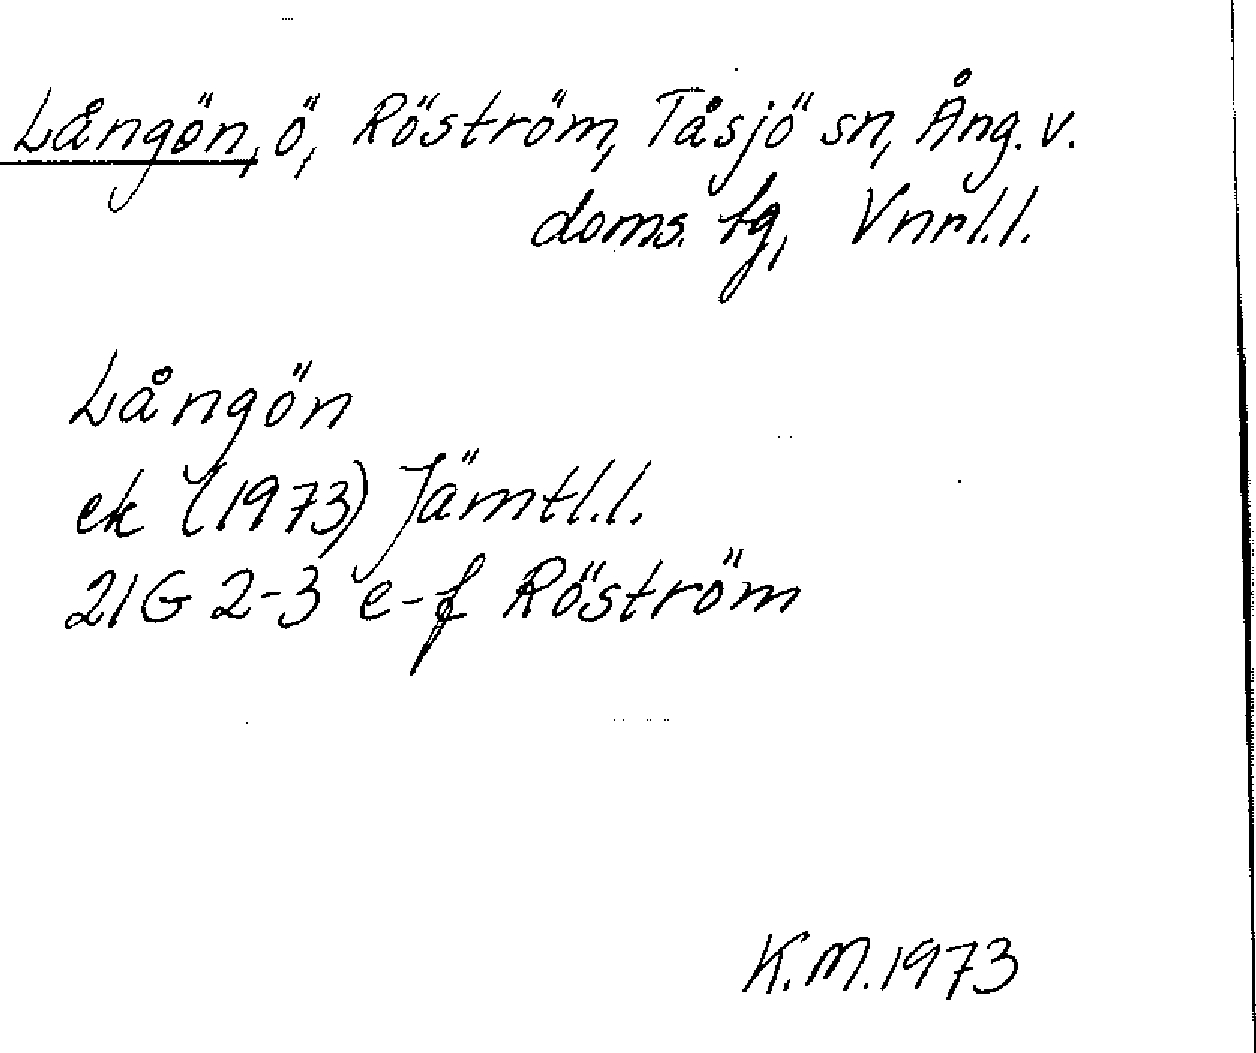 Långön, ö, Röström, Tåsjö sn, Ång. v.
doms. fg, Vnrl.l.
Långön
ek (1973) Jämtl.l.
21G 2-3 e-f Röström
K.M. 1973